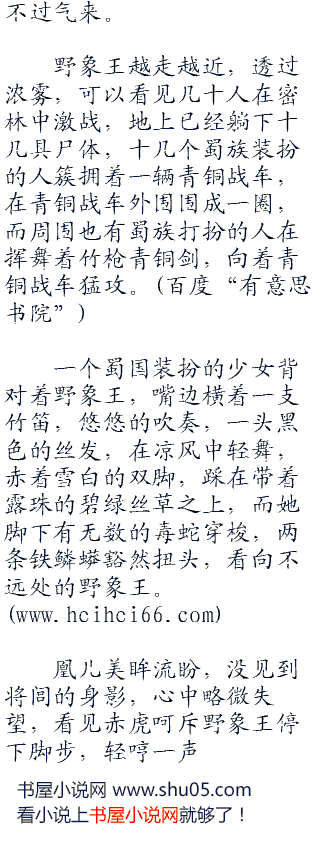 不过气来。
野象王越走越近，透过
浓雾，可以看见几十人在密
林中激战，地上已经躺下十
几具尸体，十几个蜀族装扮
的人簇拥着一辆青铜战车，
在青铜战车外围围成一圈，
而周围也有蜀族打扮的人在
挥舞着竹枪青铜剑，向着青
铜战车猛攻。(百度“有意思
书院”)
一个蜀国装扮的少女背
对着野象王，嘴边横着一支
竹笛，悠悠的吹奏，一头黑
色的丝发，在凉风中轻舞，
赤着雪白的双脚，踩在带着
露珠的碧绿丝草之上，而她
脚下有无数的毒蛇穿梭，两
条铁鳞蟒豁然扭头，看向不
远处的野象王。
(www.hcihci66.com)
凰儿美眸流盼，没见到
将闾的身影，心中略微失
望，看见赤虎呵斥野象王停
下脚步，轻哼一声
书屋小说网 www.shu05.com
看小说上书屋小说网就够了！